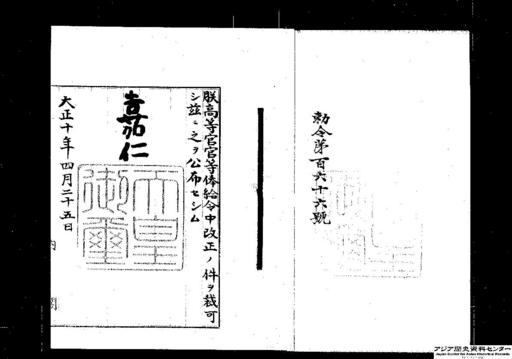 勅令第百六十六號
朕高等官官等俸給令中改正ノ件ヲ裁可
シ茲ニ之ヲ公布セシム
嘉仁
天皇御璽
大正十年四月二十五日
内閣
アジア歴史資料センター
Japan Center for Asian Historical Records